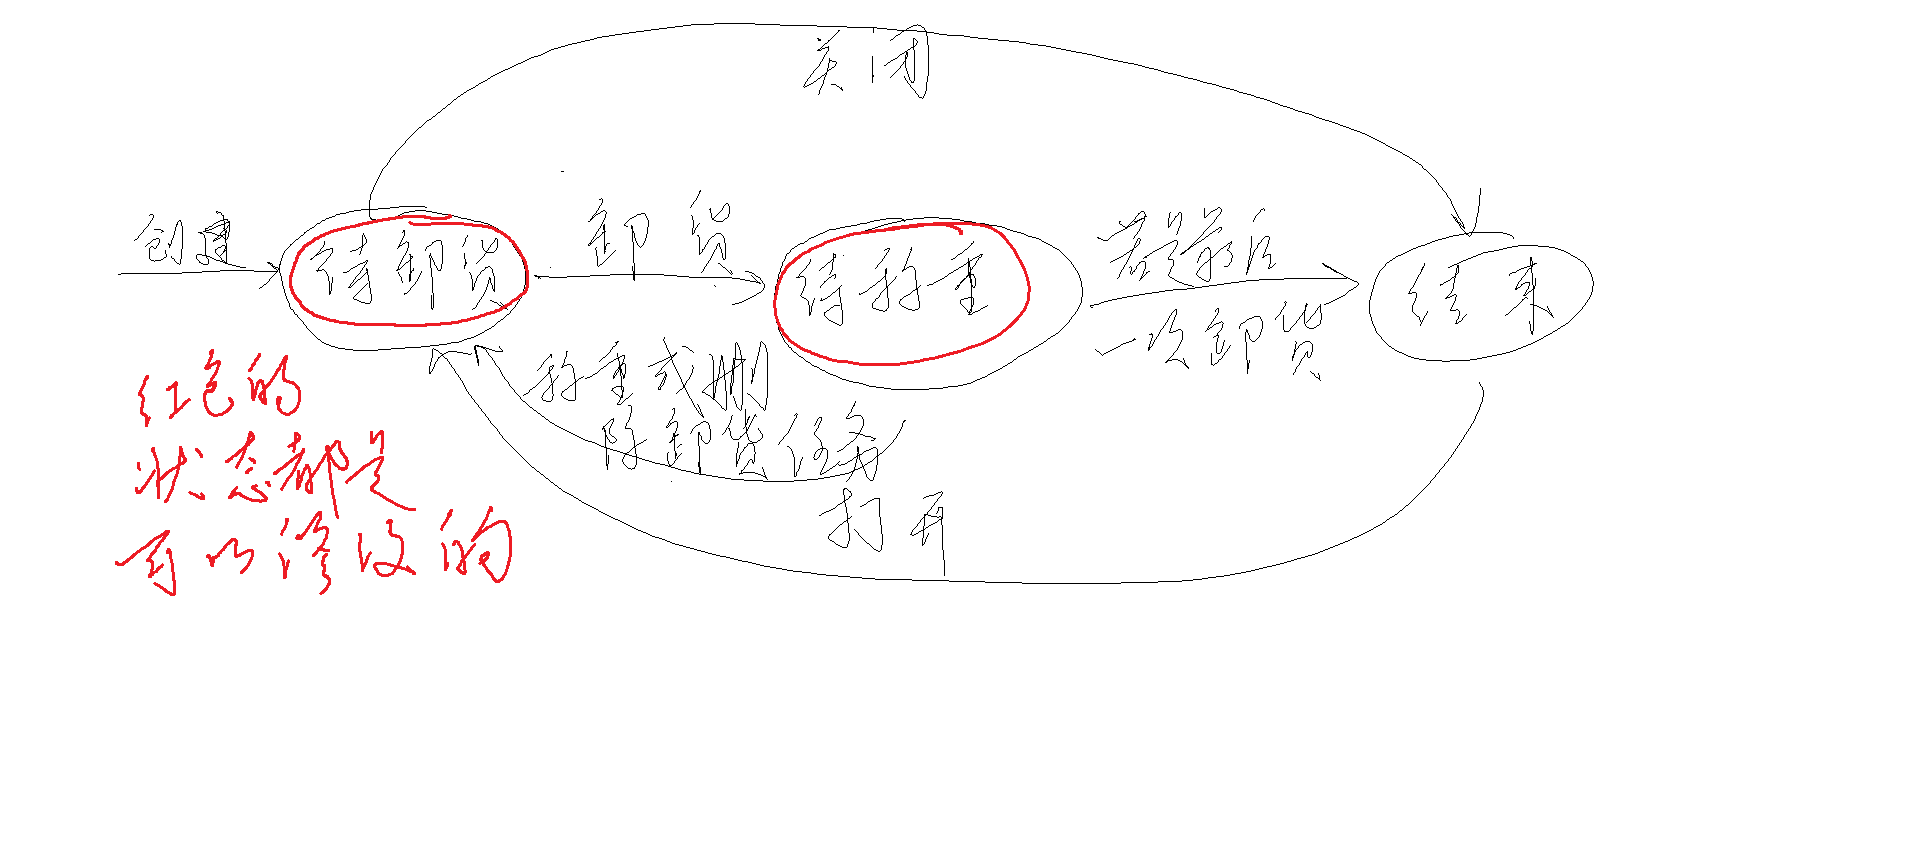 关闭
创建
待卸货
卸货
待称重
若是最后
一次卸货
结束
称重或删
除卸货任务
打开
红色的
状态都是
可以修改的